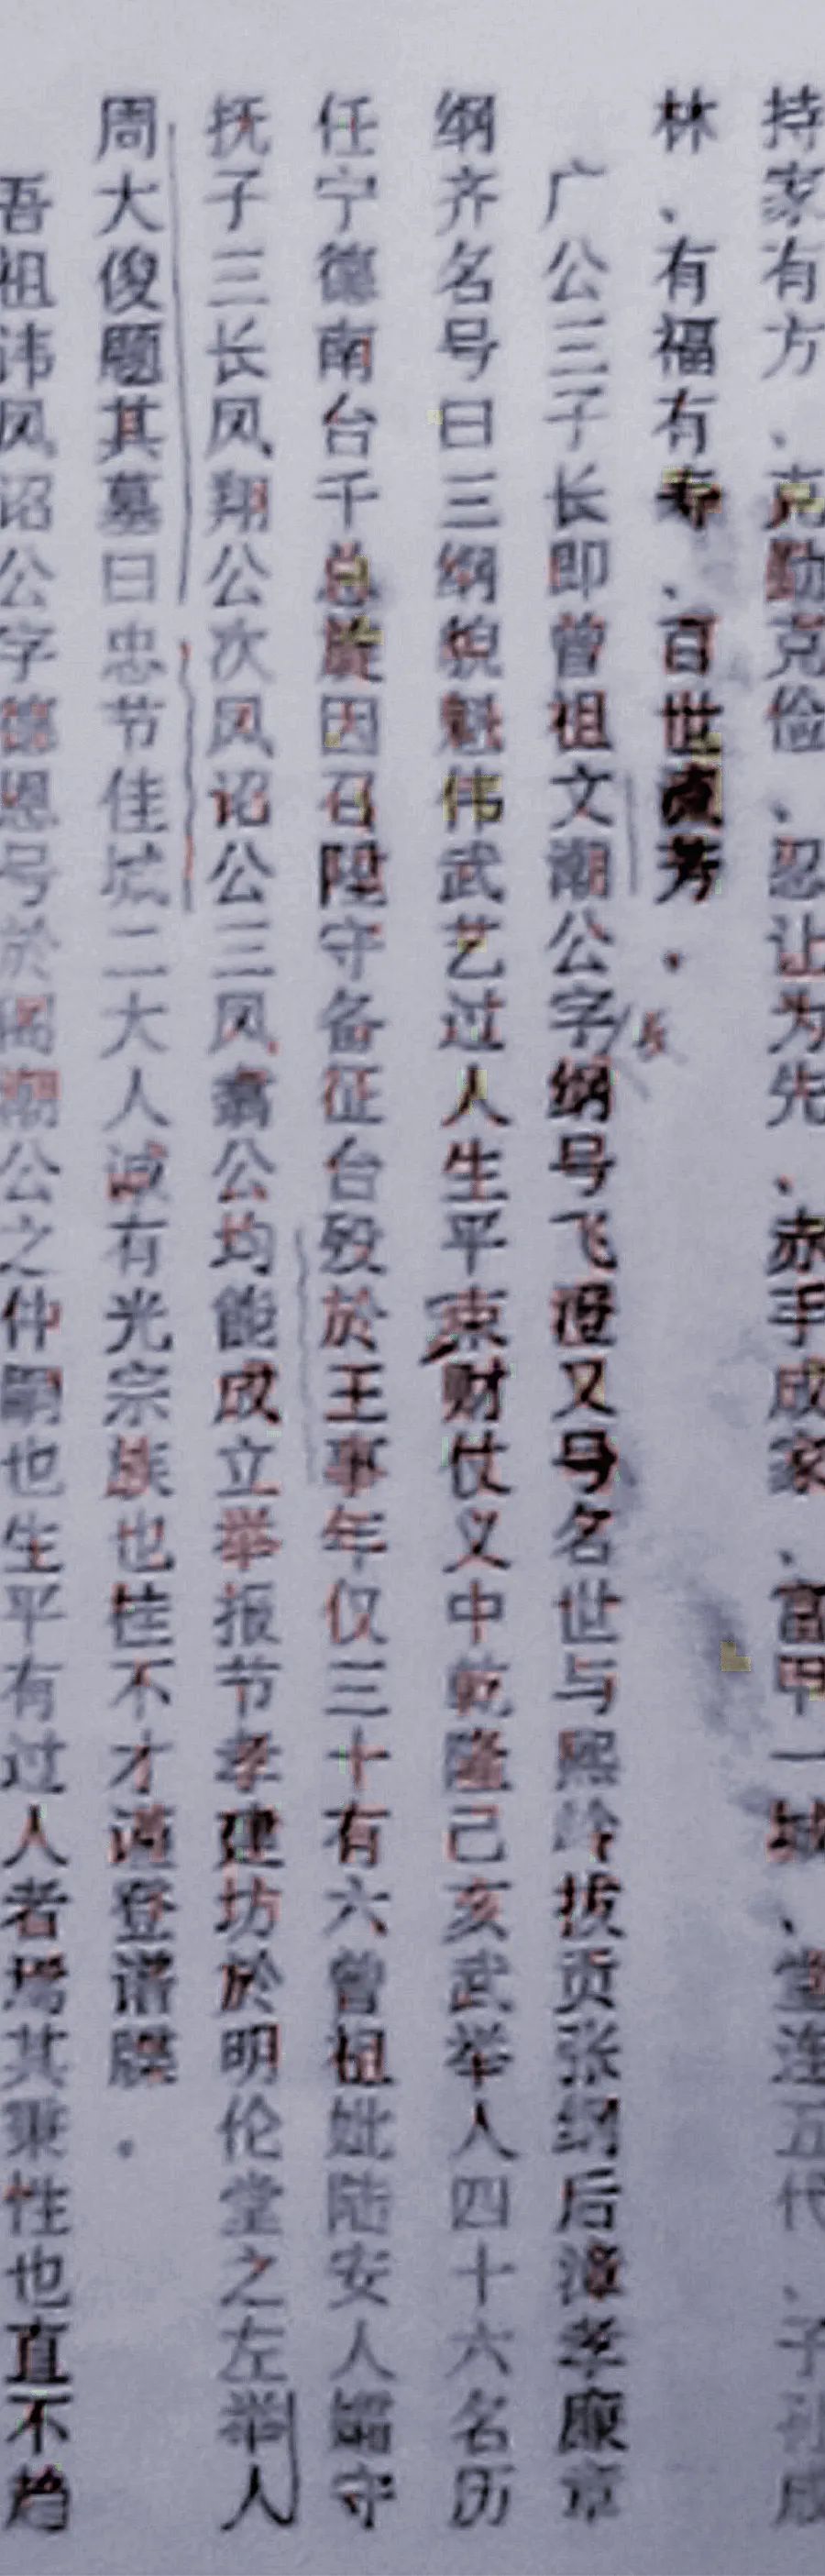 持家有方、克勤克俭、忍让为先、赤手成家、富甲一城、堂连五代、子孙成
林、有福有寿、百世流芳.
广公三子长即曾祖文潮公字纲号飞又号名世与熙岭拔贡张纲后漳孝廉章
纲齐名号曰三纲貌魁伟武艺过人生平疎财仗义中乾隆己亥武举人四十六名历
任宁德南台千总旋因召陞守备征台殁於王事年仅三十有六曾祖妣陆安人孀守
抚子三长凤翔公次凤诏公三凤翥公均能成立举报节孝建坊於明伦堂之左举人
周大俊题其墓曰忠节佳城二大人诚有光宗族也桂不才谨登谱牒.
吾祖讳凤诏公字德恩号於阁潮公之仲嗣也生平有过人者焉其秉性也直不趋